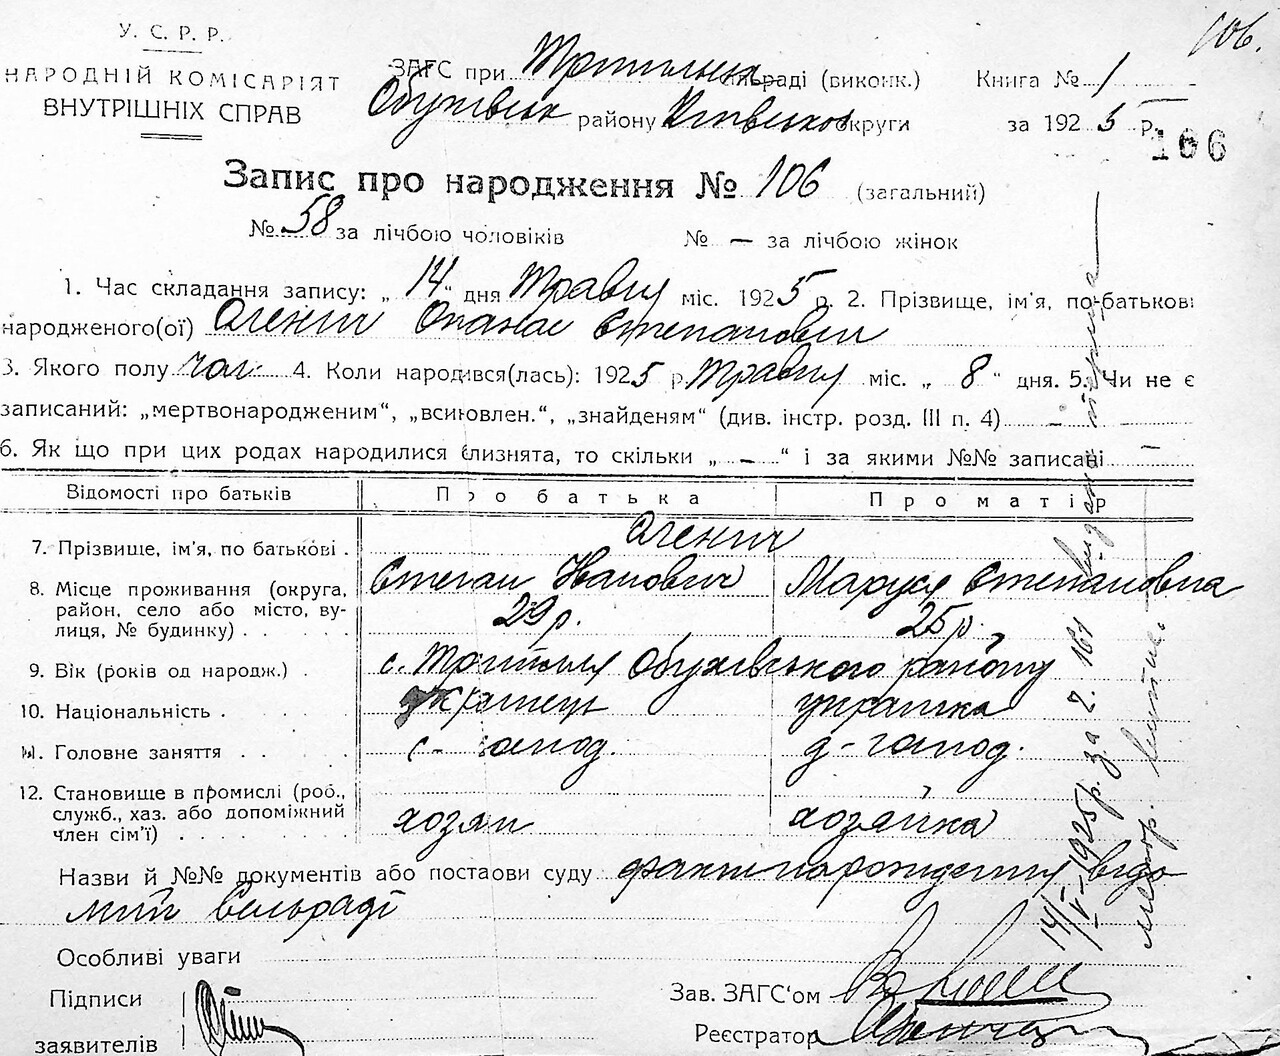 106.
У. С. Р. Р.
НАРОДНІЙ КОМІСАРІЯТ
ВНУТРІШНІХ СПРАВ
ЗАГС при Трипільск. сільраді (виконк.) Книга № 1
Обухівськ району Київської округи за 1925 р.
166
Запис про народження № 106 (загальний)
№ 58 за лічбою чоловіків № — за лічбою жінок
1. Час складання запису: „ 14 " дня Травня міс. 1925 р. 2. Прізвище, ім'я, по-батькові
народженого(ої) Опанас Степанович
3. Якого полу чол. 4. Коли народився(лась): 1925 р. Травня міс. „ 8 " дня. 5. Чи не є
записаний: „мертвонародженим", „всиновлен.", „знайденям" (див. інстр. розд. III п. 4) —
6. Як що при цих родах народилися близнята, то скільки „ — " і за якими №№ записані —
Відомості про батьків Про батька Про матір
7. Прізвище, ім'я, по батькові .
8. Місце проживання (округа, Степан Іванович Маруся Степановна
район, село або місто, ву- 29 р. 25 р.
лиця, № будинку) . . . . .
9. Вік (років од народж.) . с. Трипілля Обухівського району
10. Національність . . . . українець українка
11. Головне заняття . . . с-господ. д-господ.
12. Становище в промислі (роб.,
служб., хаз. або допоміжний хозяин хозяйка
член сім'ї) . . . . . . .
Назви й №№ документів або постаови суду факт народження відо-
мий Сельраді
Особливі уваги
Підписи
заявителів
Зав. ЗАГС'ом
Реєстратор
14/V-1925р. за № 161